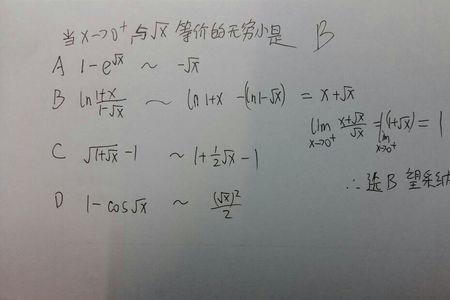 当 x→0⁺ 与 √x 等价的无穷小是 B
A 1-e^√x ~ -√x
B ln (1+x)/(1-√x) ~ ln 1+x -(ln 1-√x) = x+√x
lim x→0⁺ (x+√x)/√x = lim x→0⁺ (1+√x) = 1
C √(1+√x) -1 ~ 1+½√x -1
∴ 选B 望采纳
D 1-cos√x ~ (√x)²/2